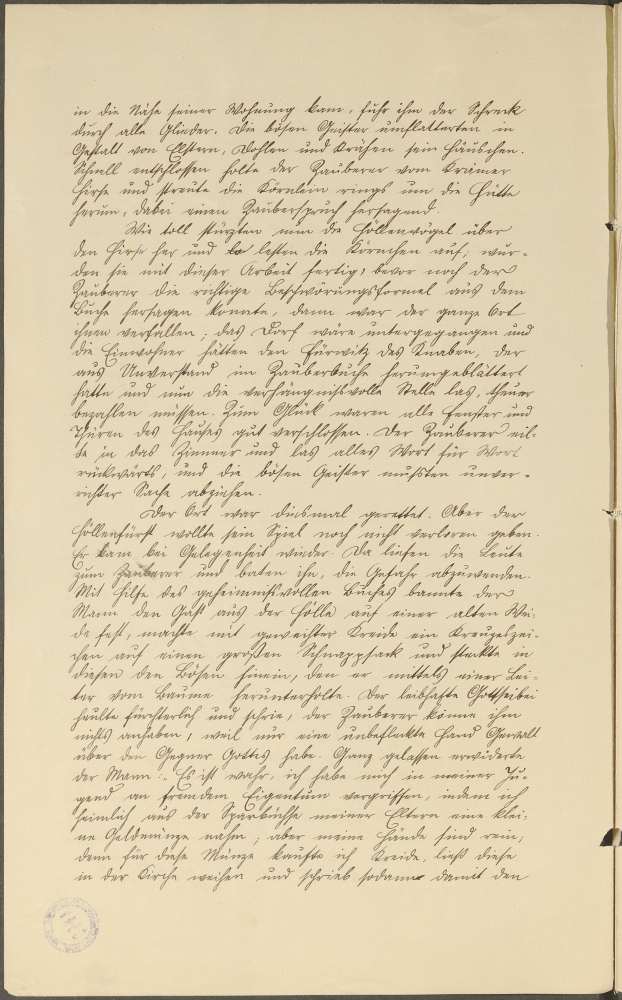 in die Nähe seiner Wohnung kam, fuhr ihm der Schreck
durch alle Glieder. Die bösen Geister umflatterten in
Gestalt von Elstern, Dohlen und Krähen sein Häuschen.
Schnell entschlossen holte der Zauberer vom Krämer
Hirse und streute die Körnlein rings um die Hütte
herum, dabei einen Zauberspruch hersagend.
Wie toll stürzten nun die Höllenvögel über
den Hirse her und lasen die Körnchen auf; wur-
den sie mit dieser Arbeit fertig, bevor noch der
Zauberer die richtige Beschwörungsformel aus dem
Buche hersagen konnte, dann war der ganze Ort
ihnen verfallen; das Dorf wäre untergegangen und
die Einwohner hätten den Fürwitz des Knaben, der
aus Unverstand im Zauberbuche herumgeblättert
hatte und nun die verhängnisvolle Stelle las, theuer
bezahlen müssen. Zum Glück waren alle Fenster und
Thüren des Hauses gut verschlossen. Der Zauberer eil-
te in das Zimmer und las alles Wort für Wort
rückwärts, und die bösen Geister mußten unver-
richter Sache abziehen.
Der Ort war diesmal gerettet. Aber der
Höllenfürst wollte sein Spiel noch nicht verloren geben.
Er kam bei Gelegenheit wieder. Da liefen die Leute
zum Zauberer und baten ihn, die Gefahr abzuwenden.
Mit Hilfe des geheimnisvollen Buches bannte der
Mann den Gast aus der Hölle auf einer alten Wei-
de fest, machte mit geweihter Kreide ein Kreuzeszei-
chen auf einen großen Schnappsack und steckte in
diesen den Bösen hinein, den er mittels einer Lei-
ter vom Baume herunterholte. Der leibhafte Gottseibei
heulte fürchterlich und schrie, der Zauberer könne ihm
nichts anhaben, weil nur eine unbefleckte Hand Gewalt
über den Gegner Gottes habe. Ganz gelassen erwiderte
der Mann: Es ist wahr, ich habe mich in meiner Ju-
gend an fremdem Eigentum vergriffen, indem ich
heimlich aus der Sparbüchse meiner Eltern eine klei-
ne Geldmünze nahm; aber meine Hände sind rein,
denn für diese Münze kaufte ich Kreide, ließ diese
in der Kirche weihen und schrieb sodann damit den